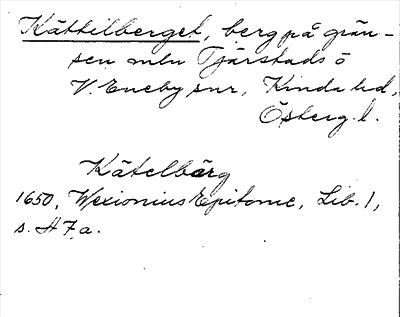 Kättilberget, berg på grän-
sen mln Tjärstads o
V. Eneby snr, Kinda hd,
Österg. l.
Kätelbärg
1650, Wexionius Epitome, Lib. 1,
s. H 7 a.